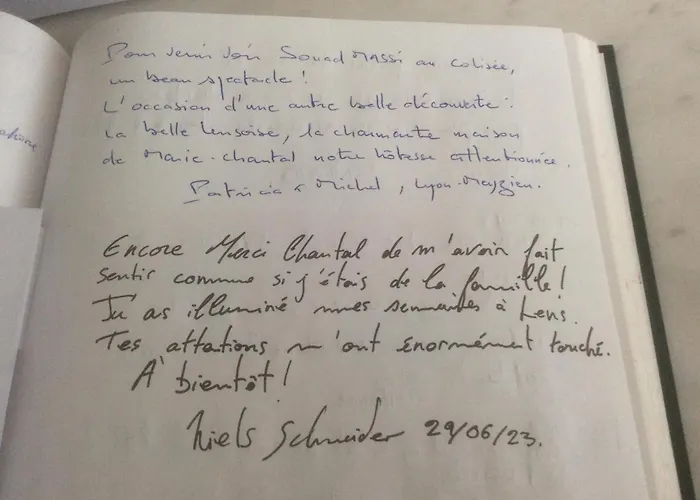 Pour venir voir Souad MASSI au Colisée,
un beau spectacle !
L'occasion d'une autre belle découverte :
La belle Lensoise, la charmante maison
de Marie-Chantal notre hôtesse attentionnée.
Patricia & Michel, Lyon-Meyzieu.
Encore Merci Chantal de m'avoir fait
sentir comme si j'étais de la famille !
Tu as illuminé mes semaines à Lens.
Tes attations m'ont énormément touché.
A bientôt !
Niels Schneider 29/06/23.